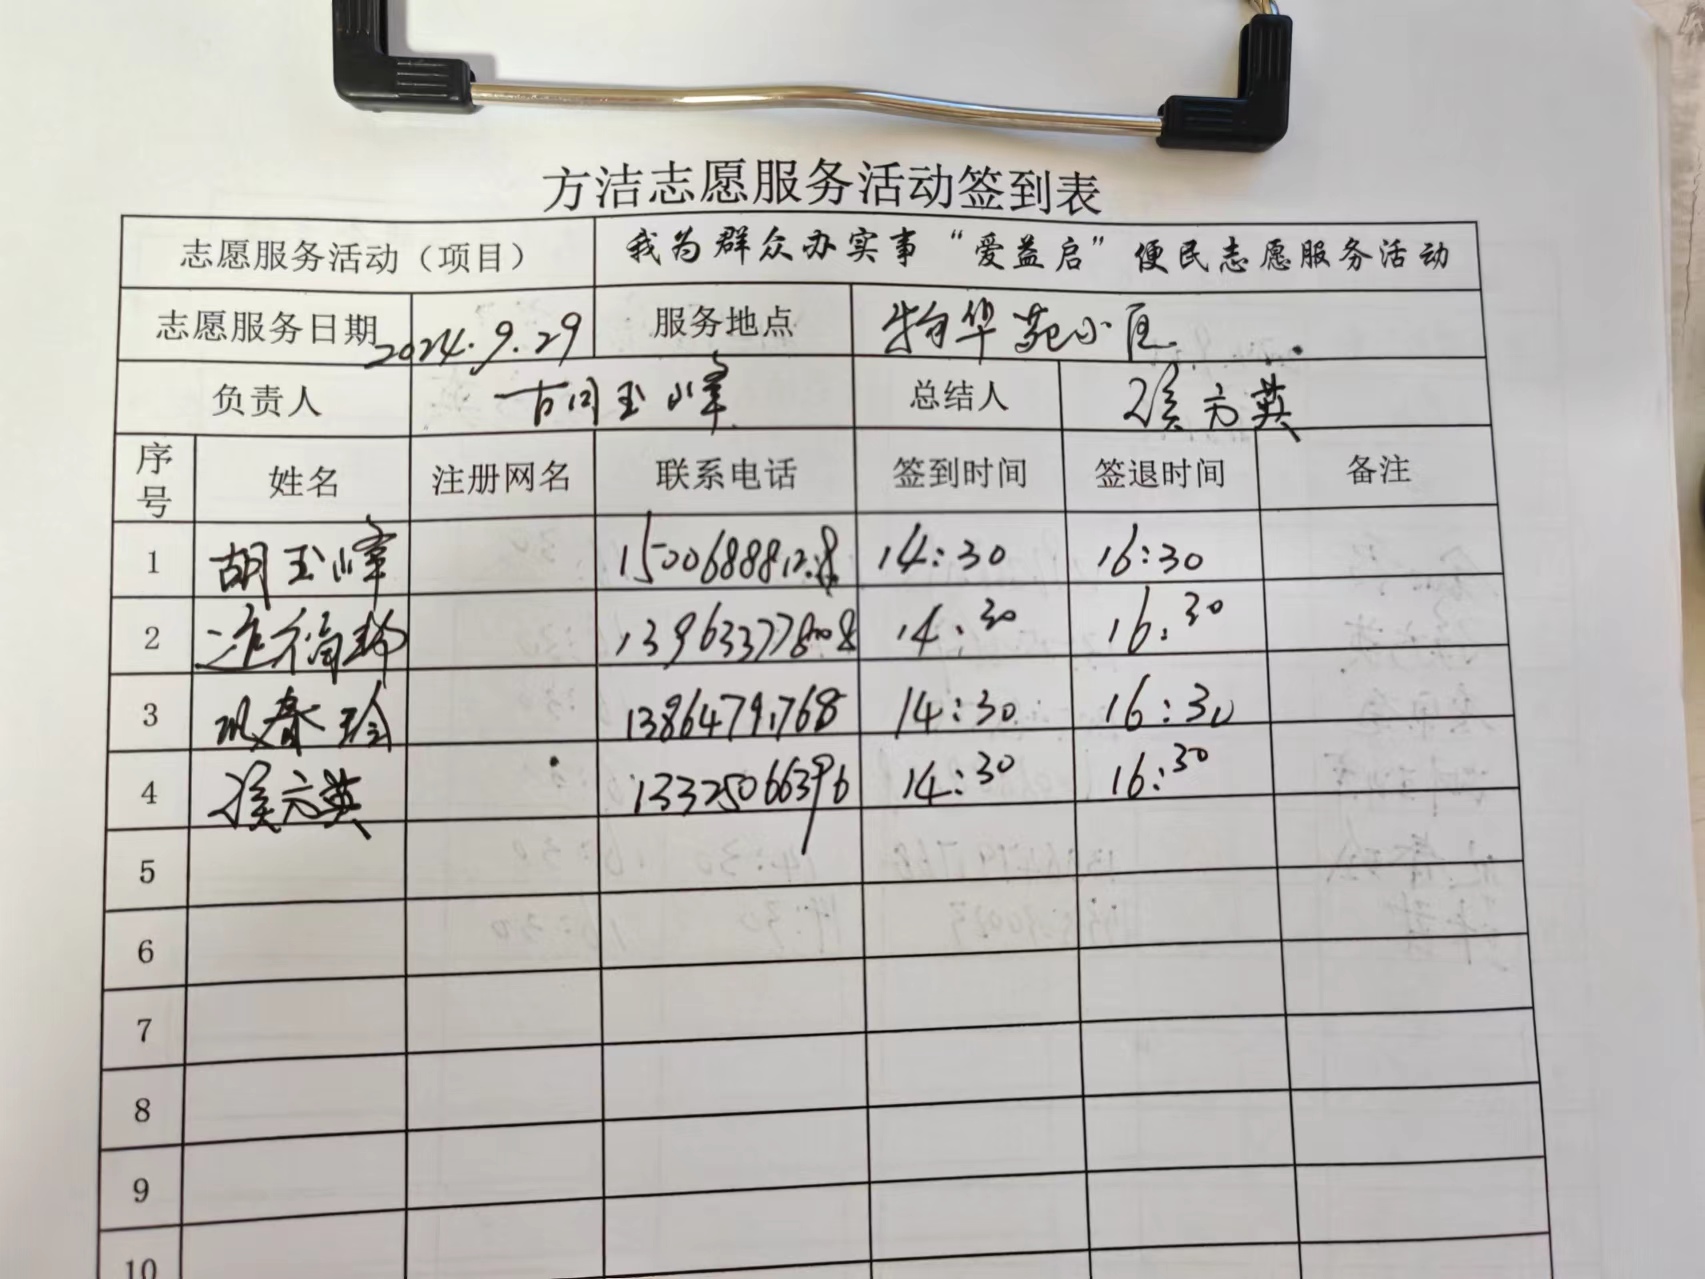 方洁志愿服务活动签到表
志愿服务活动（项目） 我为群众办实事“爱益启”便民志愿服务活动
志愿服务日期 2024.9.29 服务地点 物华苑小区
负责人 胡玉峰 总结人 侯方英
序号 姓名 注册网名 联系电话 签到时间 签退时间 备注
1 胡玉峰 15006888128 14:30 16:30
2 13963377808 14:30 16:30
3 春玲 13864791768 14:30 16:30
4 侯方英 13325066396 14:30 16:30
5
6
7
8
9
10